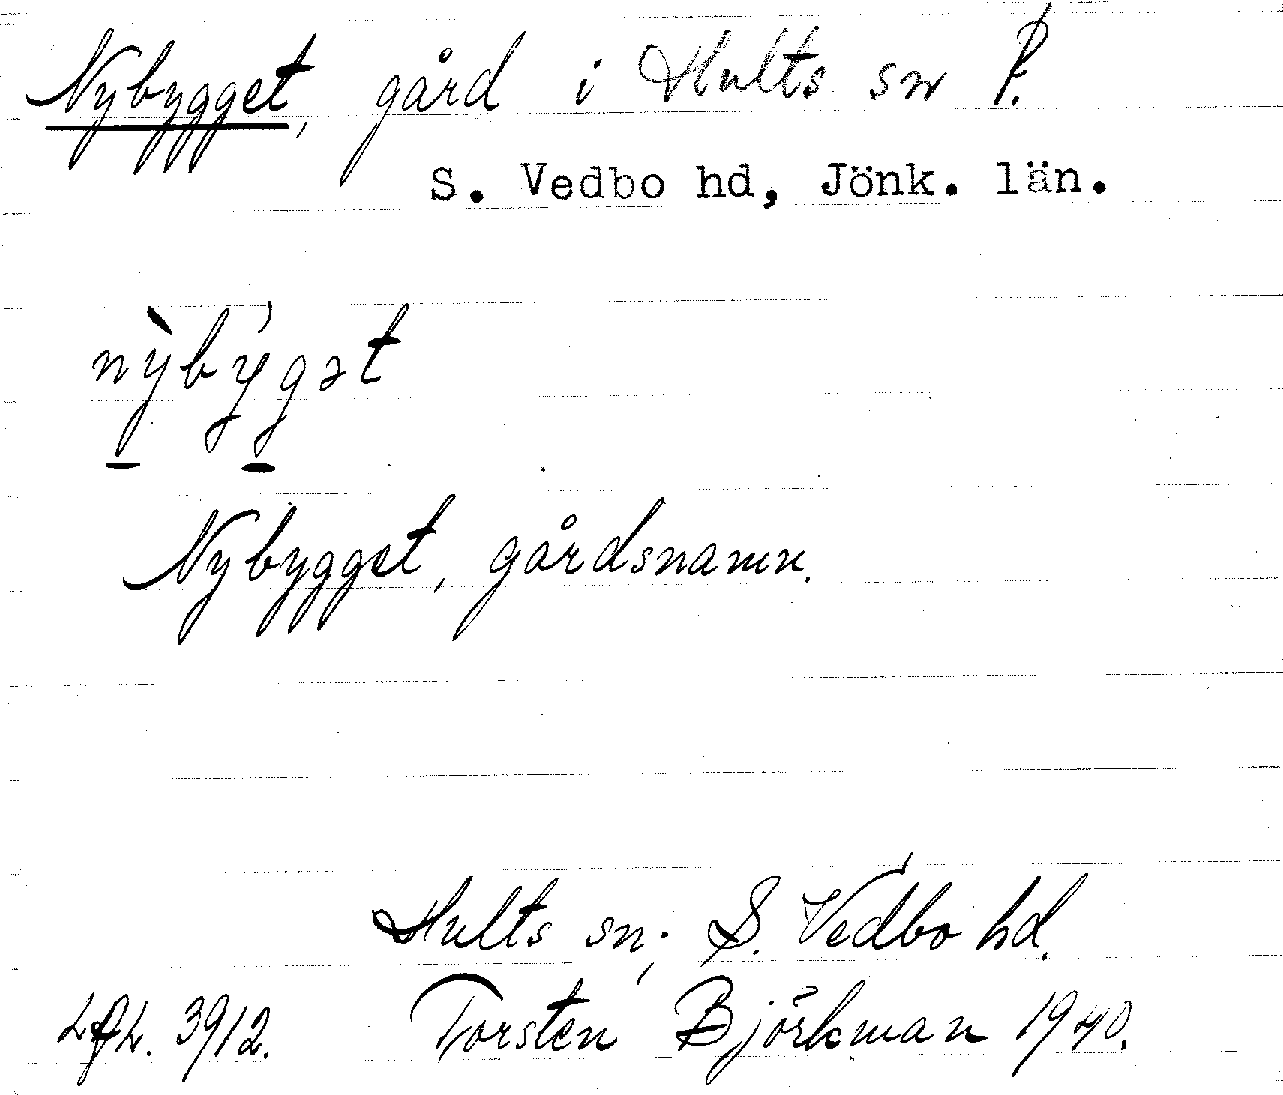 Nybygget, gård i Hults sn P.
S. Vedbo hd, Jönk. län.
nỳbýgət
Nybygget, gårdsnamn.
Hults sn; S. Vedbo hd.
3912. Torsten Björkman 1940.